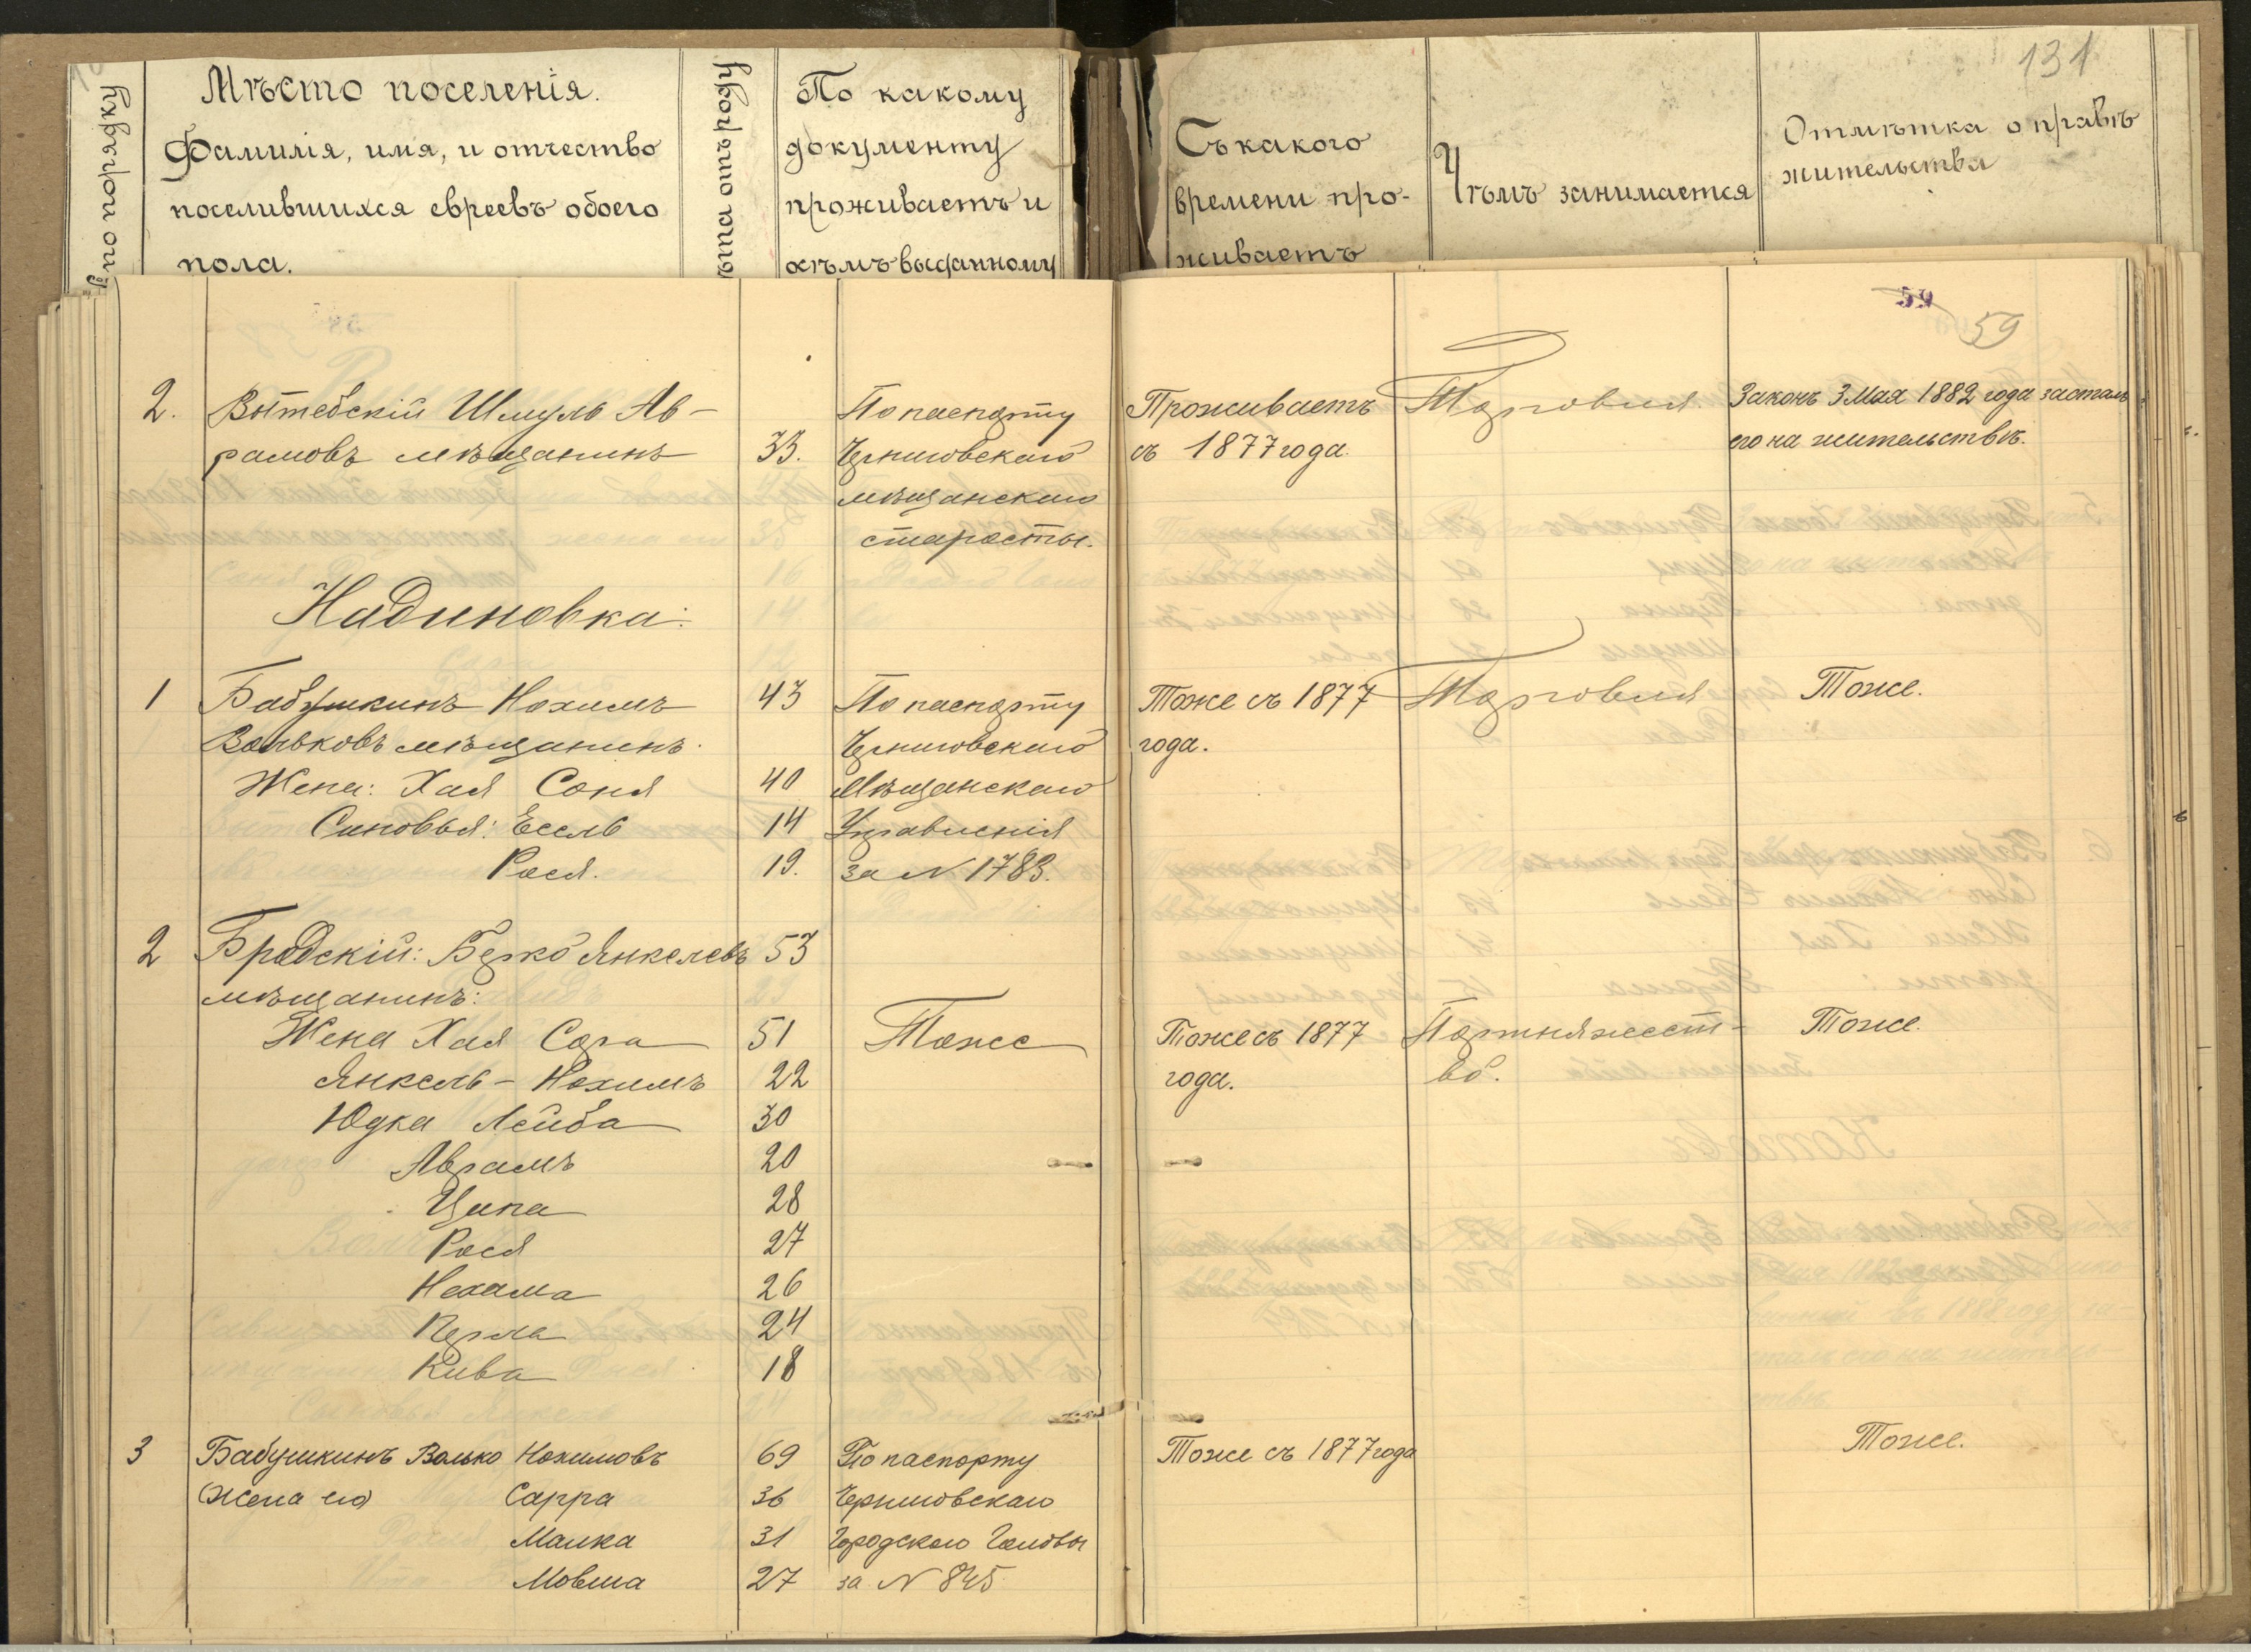 131
№ по порядку
Мѣсто поселенія.
Фамилія, имя, и отчество
поселившихся евреевъ обоего
пола.
Лѣта отъ роду
По какому
документу
проживаетъ и
кѣмъ выданному
Съ какого
времени про-
живаетъ
Чѣмъ занимается
Отмѣтка о правѣ
жительства
59
59
2. Витебскій Шмуль Ав-
рамовъ мѣщанинъ 33.
По паспорту
Черниговскаго
мѣщанскаго
старосты.
Проживаетъ
съ 1877 года.
Торговля.
Законъ 3 Мая 1882 года засталъ
его на жительствѣ.
Надиновка.
1 Бабушкинъ Нохимъ 43
Вольковъ мѣщанинъ.
Жена: Хая Соня 40
Синовья: Ессель 14
Рася. 19.
По паспорту
Черниговскаго
Мѣщанскаго
Управленія
за N 1783.
Тоже съ 1877
года.
Торговля
Тоже.
2 Бродскій: Берко Янкелевъ 53
мѣщанинъ:
Жена Хая Сора 51
Янкель - Нохимъ 22
Юдка Лейба 30
Аврамъ 20
Ципа 28
Рася 27
Нехама 26
Перла 24
Кива 18
Тоже
Тоже съ 1877
года.
Портняжест-
во.
Тоже.
3 Бабушкинъ Волько Нохимовъ 69
(Жена его) Сарра 36
Малка 31
Мовша 27
По паспорту
Черниговскаго
Городского Головы
за N 845
Тоже съ 1877 года
Тоже.